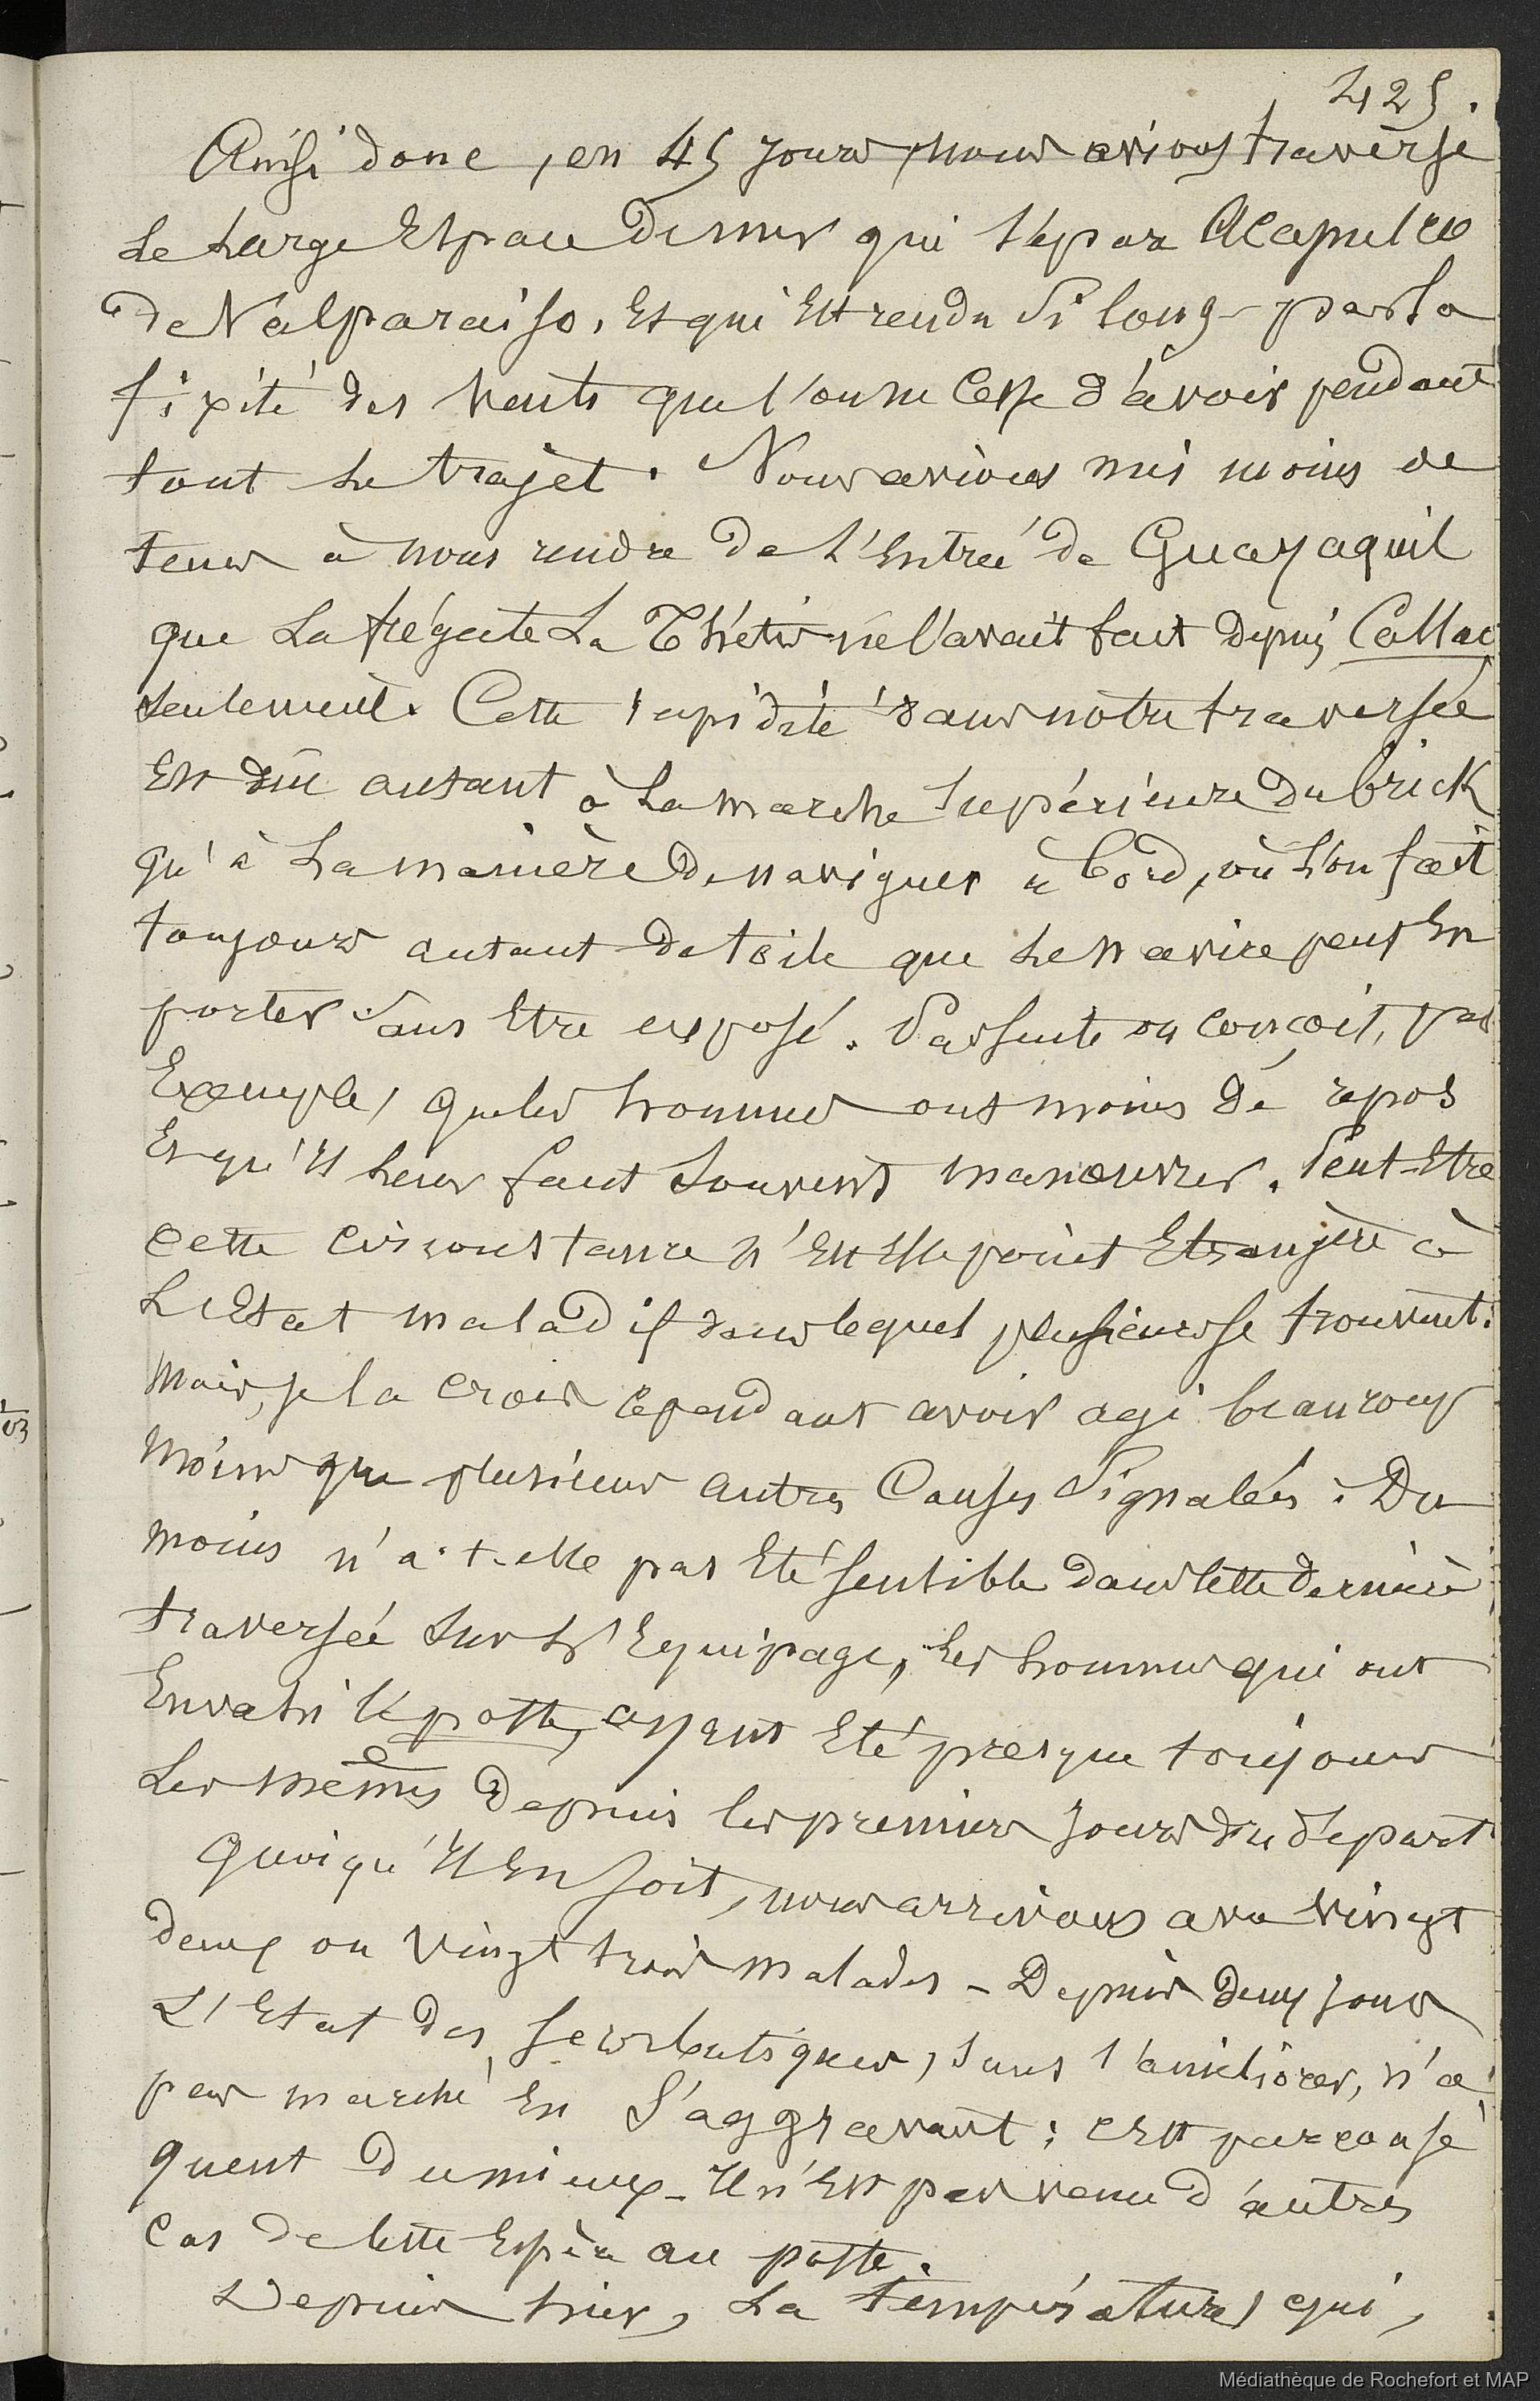 425.
Ainsi donc, en 45 jours, nous avions traversé
le large Espace de mer qui sépare Acapulco
de Valparaiso, Et qui Est rendu si long par la
fixité des vents que l'on ne cesse d'avoir pendant
tout le trajet. Nous avions mis moins de
tems à nous rendre de l'Entrée de Guayaquil
que la frégate la Thétis ne l'avait fait depuis Callao
seulement. Cette rapidité dans notre traversée
Est dûe autant à la marche supérieure du brick
qu'à la manière de naviguer à bord, où l'on fait
toujours autant de toile que le navire peut En
porter sans Etre exposé. Par suite on conçoit, par
Exemple, que les hommes ont moins de repos
Et qu'il leur faut souvent manœuvrer. Peut-Etre
cette circonstance n'Est Elle point Etrangère à
l'Etat maladif dans lequel plusieurs se trouvent.
Mais, je la crois cependant avoir agi beaucoup
moins que plusieurs autres Causes signalées. Du
moins n'a-t-elle pas Eté sensible dans cette dernière
traversée sur l'Equipage, les hommes qui ont
Envahi le poste, ayant Eté presque toujours
les mêmes depuis les premiers jours du départ
Quoiqu'il En soit, nous arrivons avec vingt
deux ou vingt trois malades - Depuis deux jours
L'Etat des scorbutiques, sans s'améliorer, n'a
pas marché En s'aggravant : c'Est par consé
quent du mieux - Il n'Est pas venu d'autres
cas de cette Espèce au poste.
Depuis hier, la température, qui,
Médiathèque de Rochefort et MAP